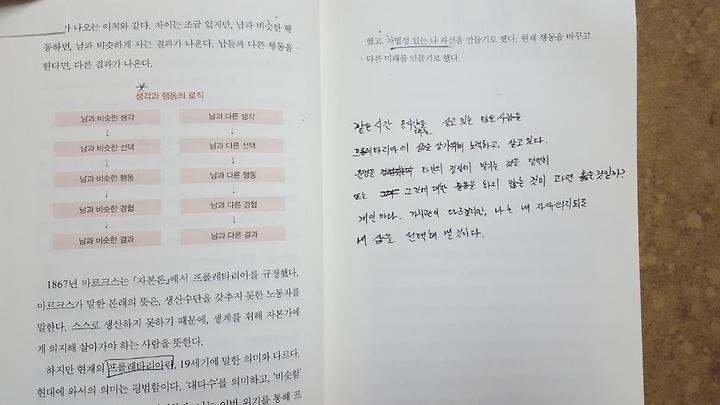 가 나오는 이치와 같다. 차이는 조금 있지만, 남과 비슷한 행
동하면, 남과 비슷하게 사는 결과가 나온다. 남들과 다른 행동을
한다면, 다른 결과가 나온다.
생각과 행동의 로직
남과 비슷한 생각 남과 다른 생각
↓ ↓
남과 비슷한 선택 남과 다른 선택
↓ ↓
남과 비슷한 행동 남과 다른 행동
↓ ↓
남과 비슷한 경험 남과 다른 경험
↓ ↓
남과 비슷한 결과 남과 다른 결과
1867년 마르크스는 『자본론』에서 프롤레타리아를 규정했다.
마르크스가 말한 본래의 뜻은, 생산수단을 갖추지 못한 노동자를
말한다. 스스로 생산하지 못하기 때문에, 생계를 위해 자본가에
게 의지해 살아가야 하는 사람을 뜻한다.
하지만 현재의 프롤레타리아란, 19세기에 말한 의미와 다르다.
현대에 와서의 의미는 평범함이다. '대다수'를 의미하고, '비슷함'
이번 위기를 통해 프
했고, 차별성 있는 나 자신을 만들기로 했다. 현재 행동을 바꾸고
다른 미래를 만들기로 했다.
같은 시간 살고 있는 많은 사람들
프롤레타리아의 삶을 살기위해 노력하고, 살고 있다.
운명은 타인의 결정에 맡기는 것은 당연히
또는 그것에 대한 물음을 하지 않는 것이 과연 옳은 것일까?
개인마다 가치관이 다르겠지만, 나는 내 자유의지대로
내 삶을 선택해 낼 것이다.